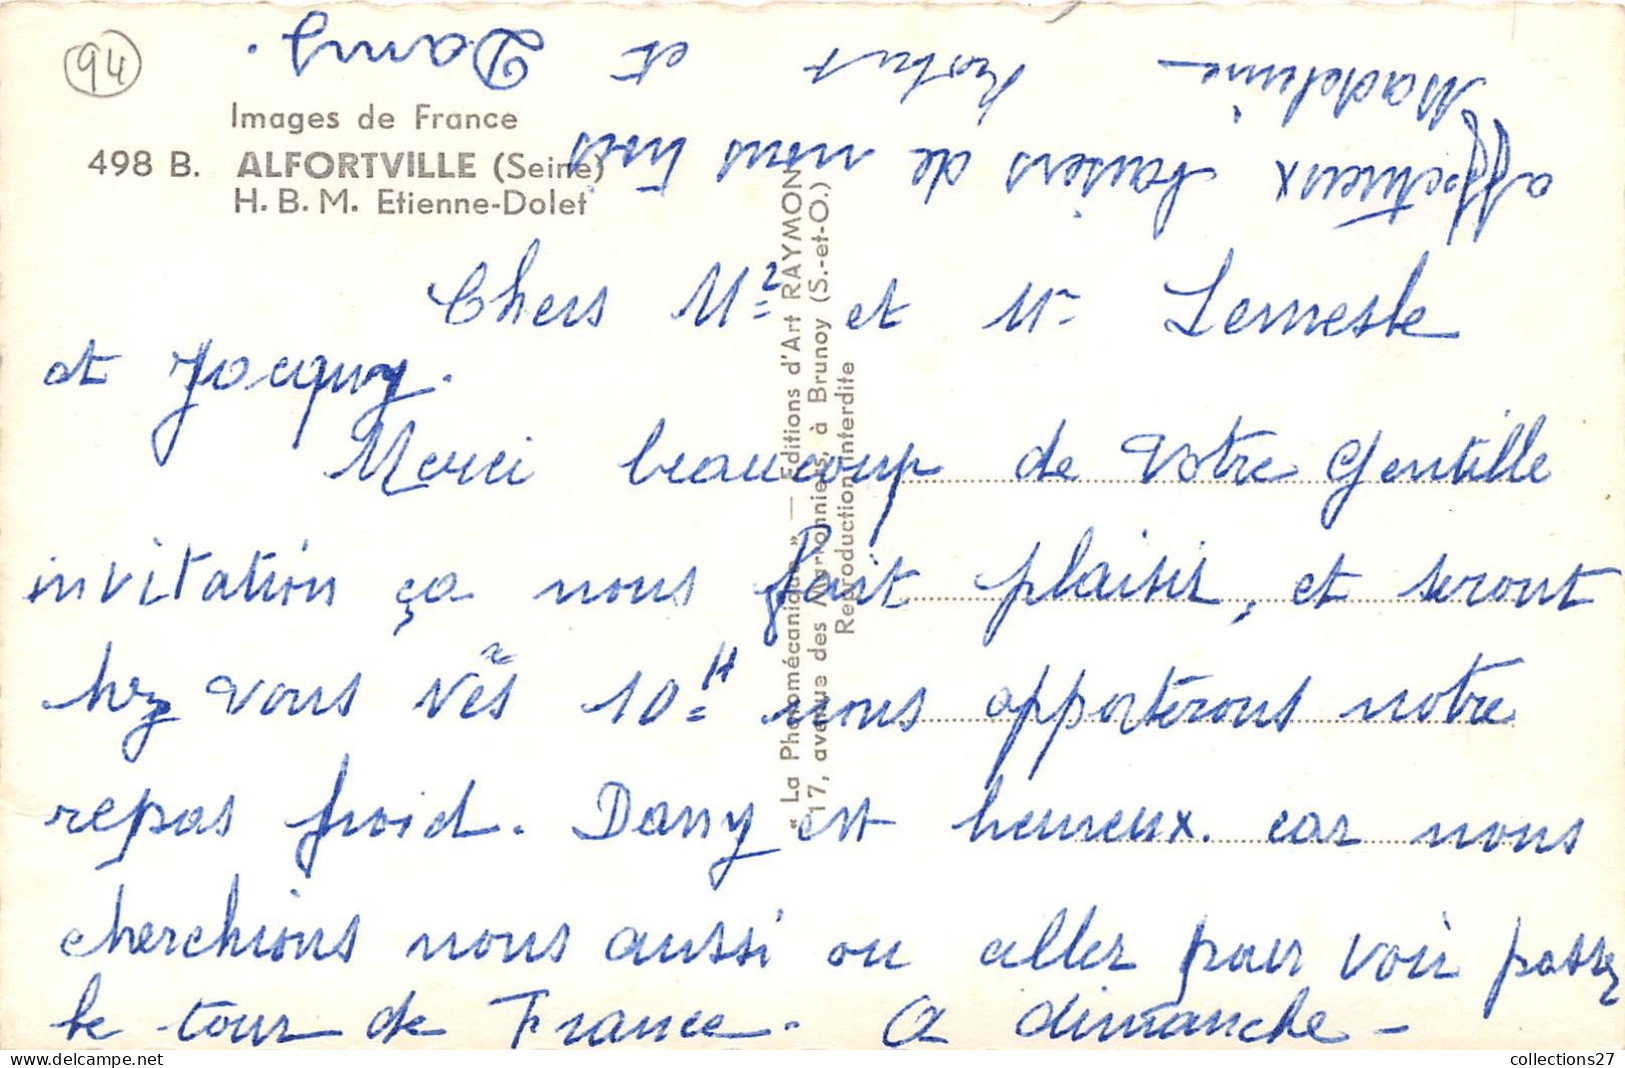 94
Images de France
498 B. ALFORTVILLE (Seine)
H. B. M. Etienne-Dolet
Chers Mr et Me Lemesle
et Jacquy.
Merci beaucoup de votre gentille
invitation ça nous fait plaisir, et seront
chez vous vers 10H nous apporterons notre
repas froid. Dany est heureux. car nous
cherchions nous aussi ou aller pour voir passez
le tour de France. A dimanche -
affectueux baisers de nous trois
Madeleine Robert et Dany.
"La Photomécanique" — Editions d'Art RAYMON
17, avenue des Marronniers, à Brunoy (S.-et-O.)
Reproduction interdite
collections27